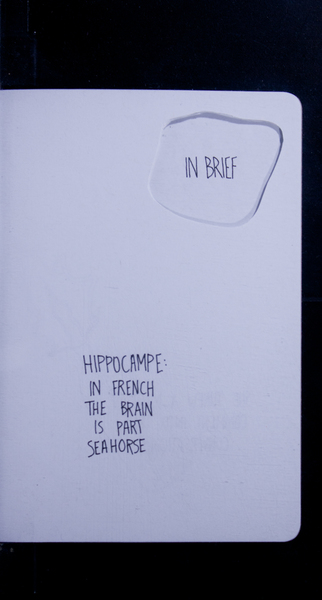 IN BRIEF
HIPPOCAMPE:
IN FRENCH
THE BRAIN
IS PART
SEAHORSE